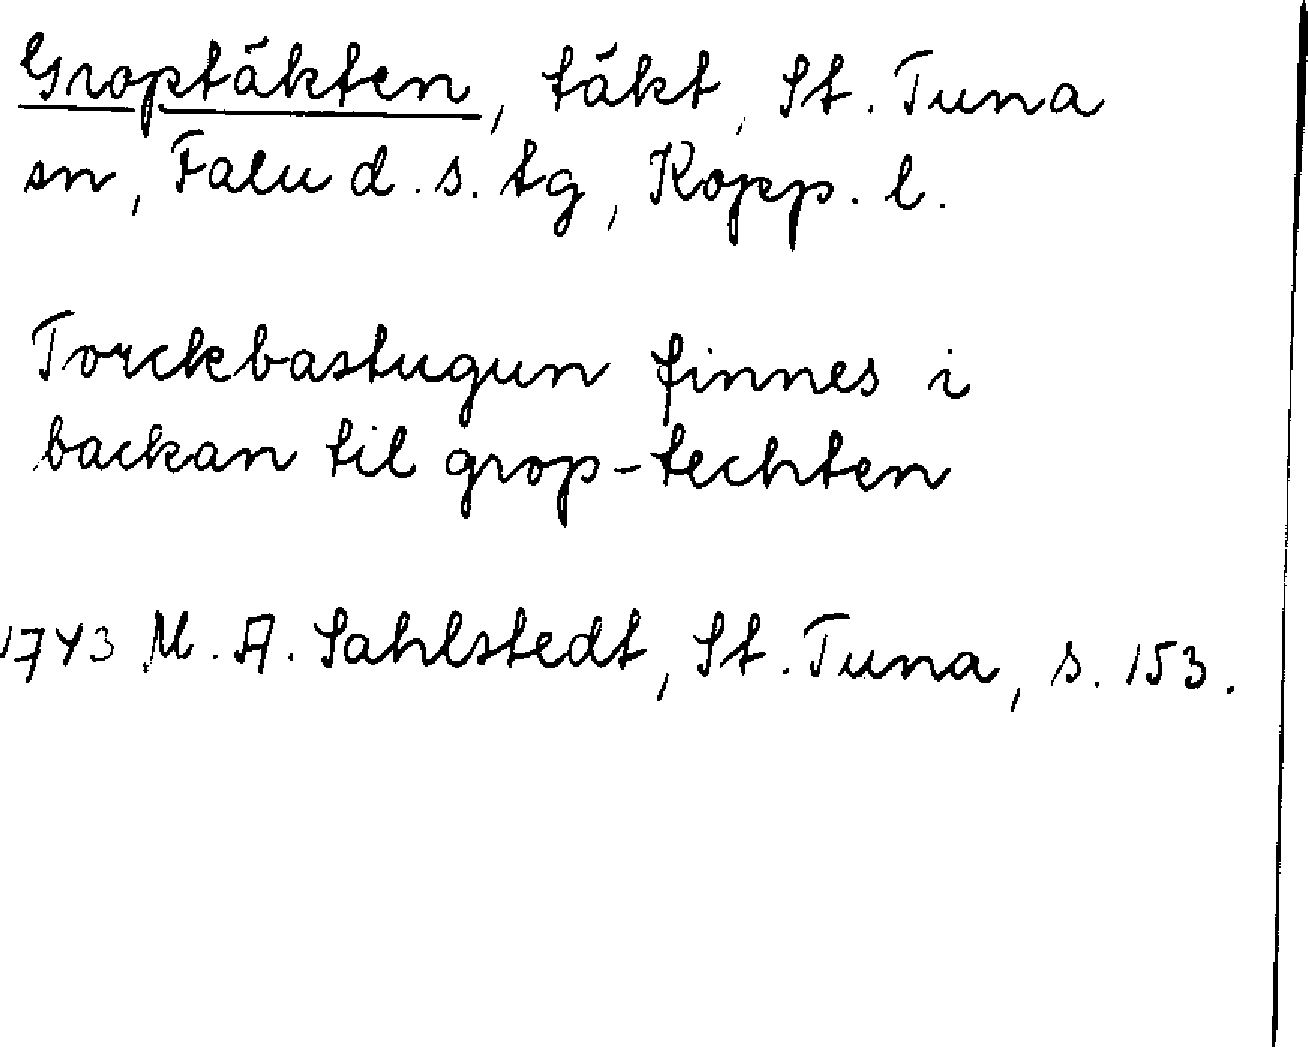 Groptäkten, täkt, St. Tuna
sn, Falu d. s. tg, Kopp. l.
Torckbastugun finnes i
backan til grop-techten
1743 M. A. Sahlstedt, St. Tuna, s. 153.